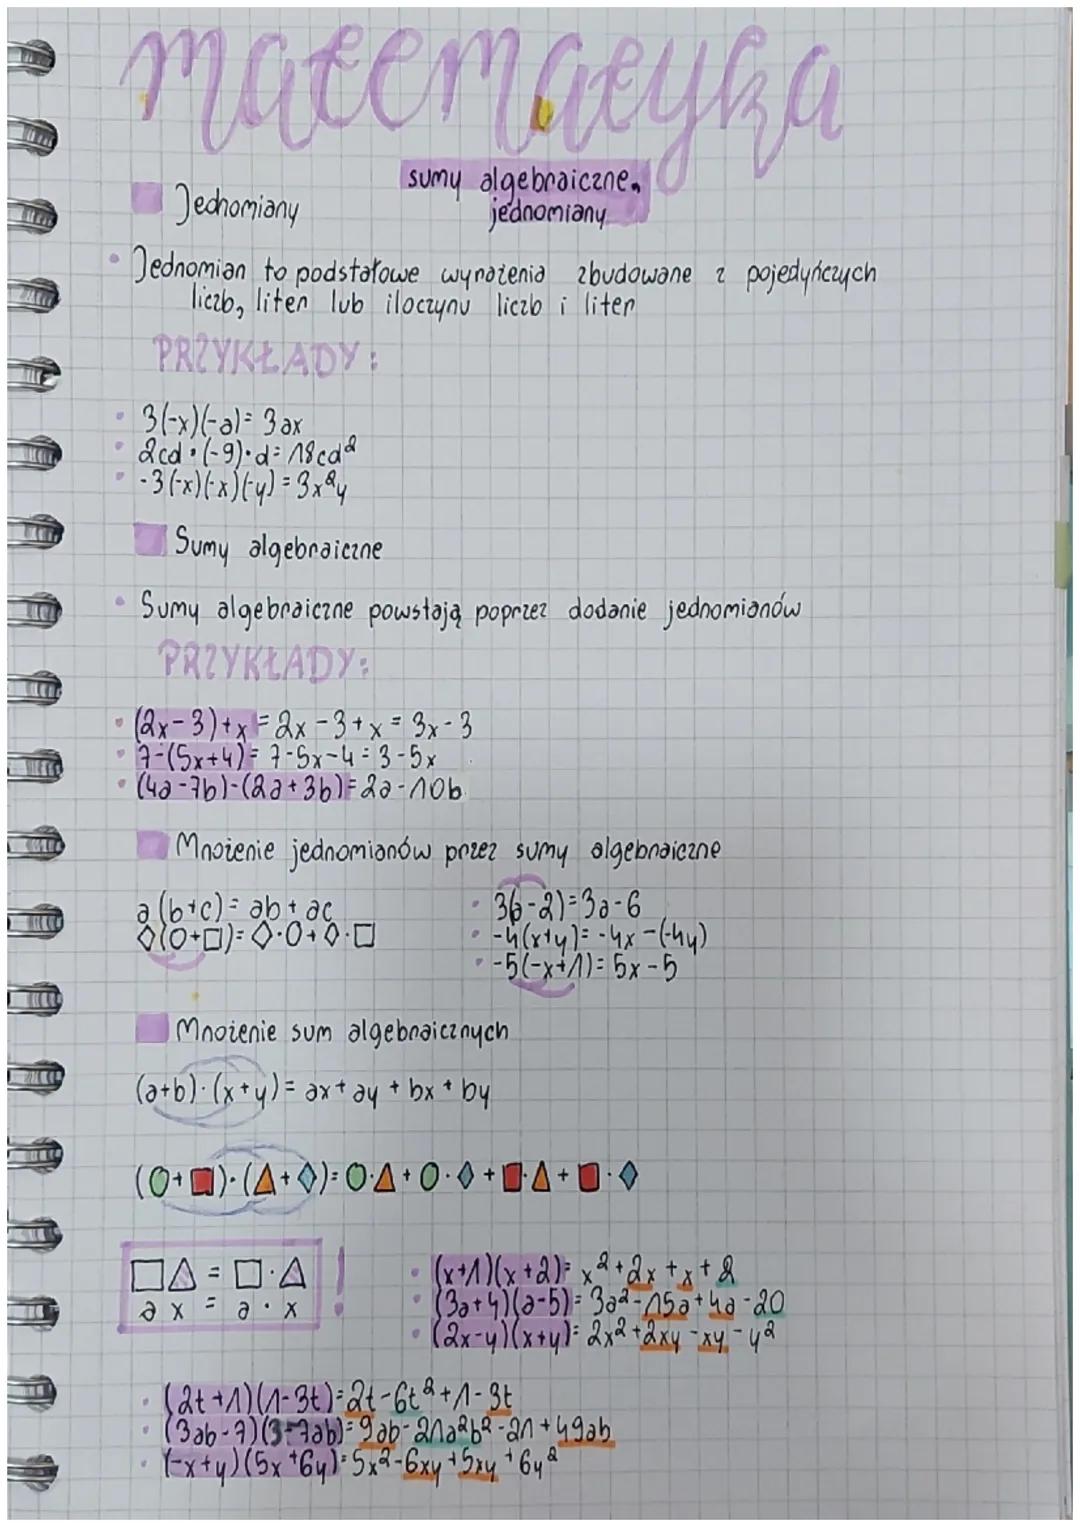 matematyka
sumy algebraiczne,
jednomiany
Jednomiany
• Jednomian to podstałowe wyrażenia zbudowane z pojedyńczych
liczb, liter lub iloczynu liczb i liter
PRZYKŁADY:
• 3(-x)(-a)= 3ax
• 2cd·(-9)·d= 18cd²
• -3(-x)(-x)(-y)=3x²y
Sumy algebraiczne
• Sumy algebraiczne powstają poprzez dodanie jednomianów
PRZYKŁADY:
• (2x-3)+x=2x-3+x=3x-3
• 7-(5x+4)=7-5x-4=3-5x
• (4a-7b)-(2a+3b)=2a-10b
Mnożenie jednomianów przez sumy algebraiczne
a(b+c)=ab+ac
◇(○+□)=◇·○+◇·□
• 3(a-2)=3a-6
• -4(x+y)=-4x-(-4y)
• -5(-x+1)=5x-5
Mnożenie sum algebraicznych
(a+b)·(x+y)=ax+ay+bx+by
(○+□)·(△+◇)=○·△+○·◇+□·△+□·◇
□△=□·△ !
a x = a · x
• (x+1)(x+2)=x²+2x+x+2
• (3a+4)(a-5)=3a²-15a+4a-20
• (2x-y)(x+y)=2x²+2xy-xy-y²
• (2t+1)(1-3t)=2t-6t²+1-3t
• (3ab-7)(3-7ab)=9ab-21a²b²-21+49ab
• (-x+y)(5x+6y)=5x²-6xy+5xy+6y²